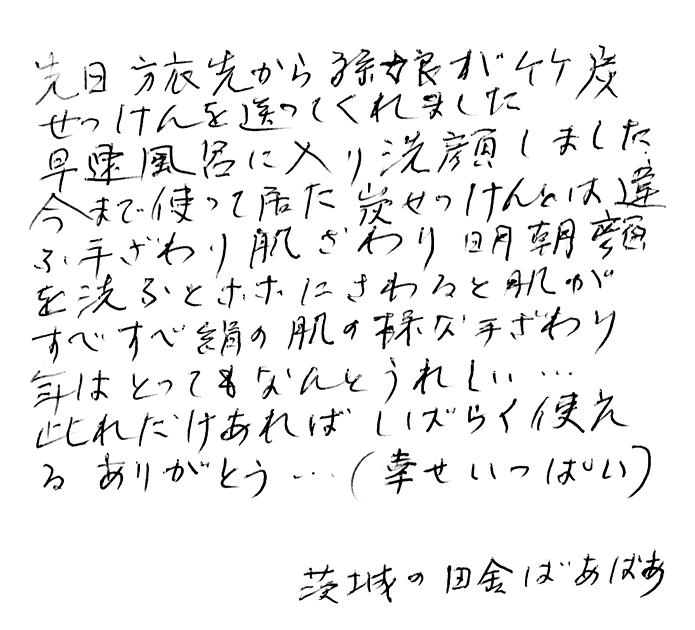 先日 方衣先から孫娘が竹炭
せっけんを送ってくれました
早速風呂に入り洗顔しました
今まで使って居た炭せっけんとは違
ふ手ざわり肌ざわり 明朝顔
を洗ふとホホにさわると肌が
すべすべ絹の肌の様な手ざわり
年はとってもなんとうれしい…
此れだけあればしばらく使え
る ありがとう…(幸せいっぱい)
茨城の田舎ばあばあ